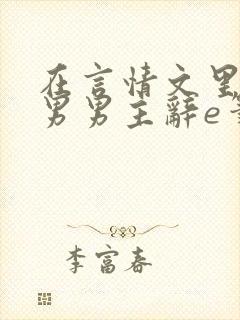 在言情文里
男男主辭e
李富春